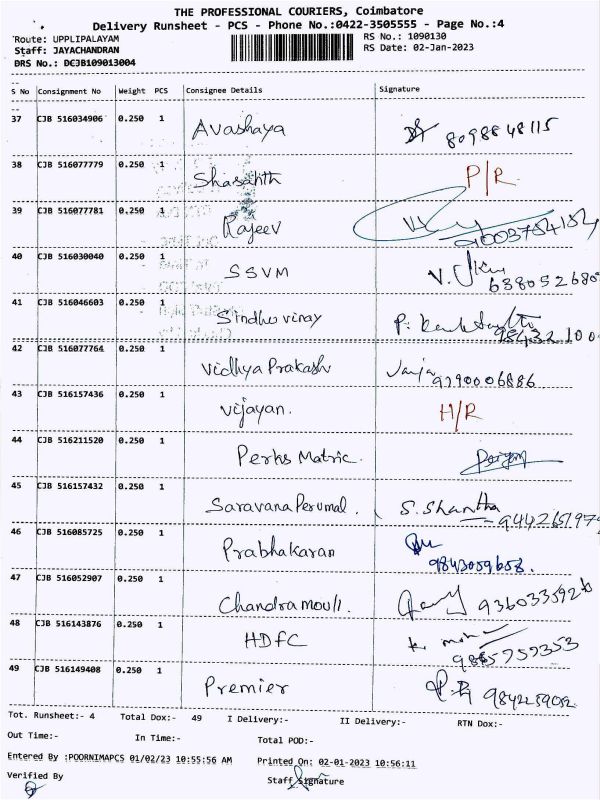 THE PROFESSIONAL COURIERS, Coimbatore
Delivery Runsheet - PCS - Phone No.:0422-3505555 - Page No.:4
Route: UPPLIPALAYAM RS No.: 1090130
Staff: JAYACHANDRAN RS Date: 02-Jan-2023
DRS No.: DCJB109013004
S No Consignment No Weight PCS Consignee Details Signature
37 CJB 516034906 0.250 1 Avashaya 8098848115
38 CJB 516077779 0.250 1 Shasanth P/R
39 CJB 516077781 0.250 1 Rajeev 9003754152
40 CJB 516030040 0.250 1 SSVM 638052680
41 CJB 516046603 0.250 1 Sindhu vinay P.
42 CJB 516077764 0.250 1 Vidhya Prakash
43 CJB 516157436 0.250 1 Vijayan. H/R
44 CJB 516211520 0.250 1 Perks Matric.
45 CJB 516157432 0.250 1 Saravana Perumal. S. Shantha
46 CJB 516085725 0.250 1 Prabhakaran 9843059658.
47 CJB 516052907 0.250 1 Chandramouli. 9360335926
48 CJB 516143876 0.250 1 HDFC
49 CJB 516149408 0.250 1 Premier
Tot. Runsheet:- 4 Total Dox:- 49 I Delivery:- II Delivery:- RTN Dox:-
Out Time:- In Time:- Total POD:-
Entered By :POORNIMAPCS 01/02/23 10:55:56 AM Printed On: 02-01-2023 10:56:11
Verified By Staff Signature